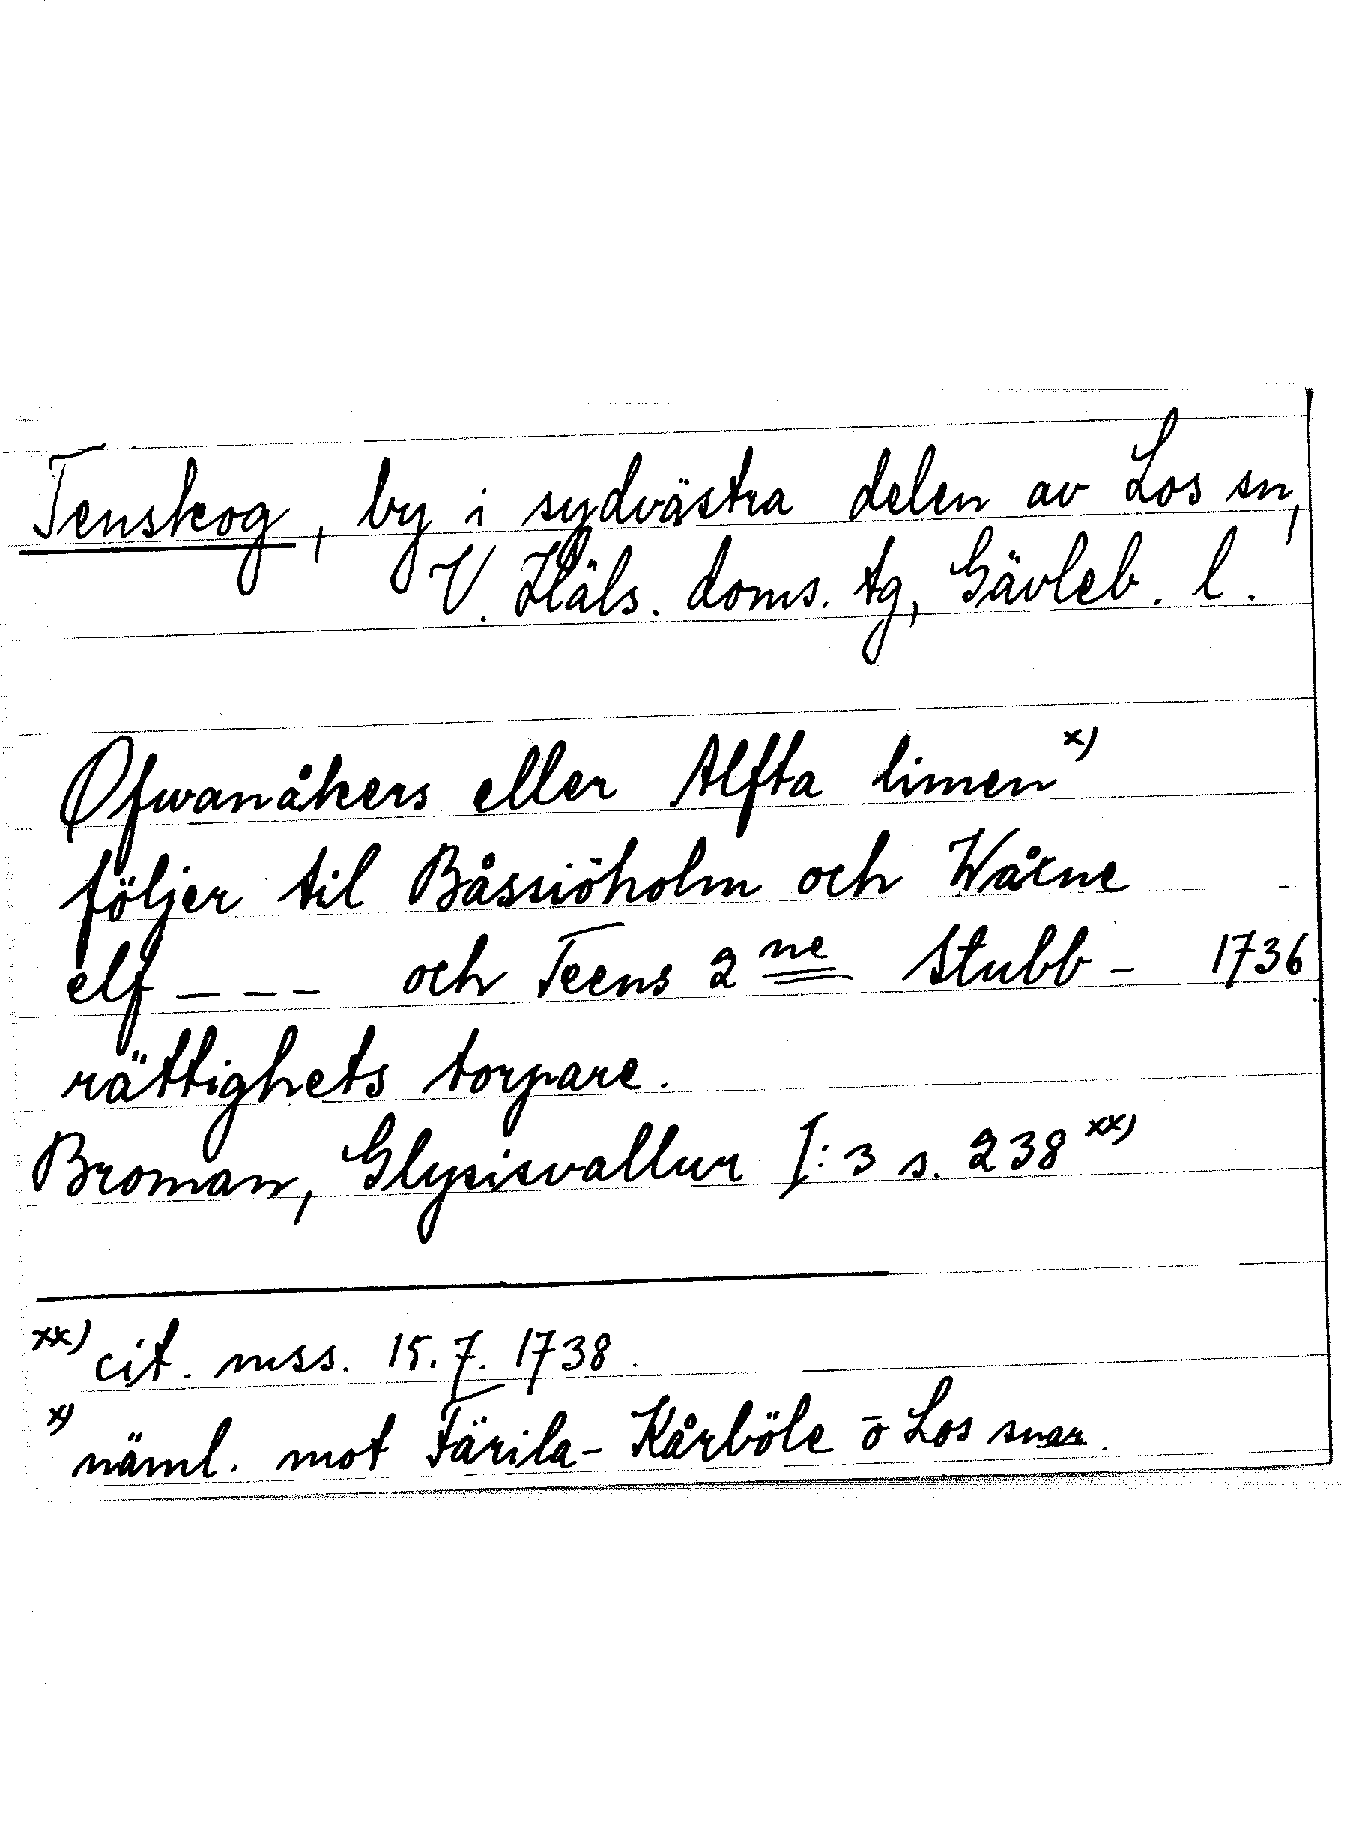 Tenskog, by i sydvästra delen av Los sn,
V. Häls. doms. tg, Gävleb. l.
Øfwanåkers eller Alfta limen x)
följer til Båssiöholm och Wåxne
elf _ _ _ och Teens 2 ne Stubb- 1736
rättighets torpare.
Broman, Glysisvallur I:3 s. 238 xx)
xx) cit. mss. 15.7.1738.
x) näml. mot Färila-Kårböle o Los snar.